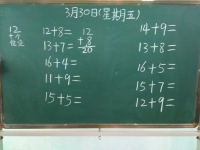 3月30日(星期五)
12
12+8=
12
+8
20
13+7=
16+4=
11+9=
15+5=
14+9=
13+8=
16+5=
15+7=
12+9=